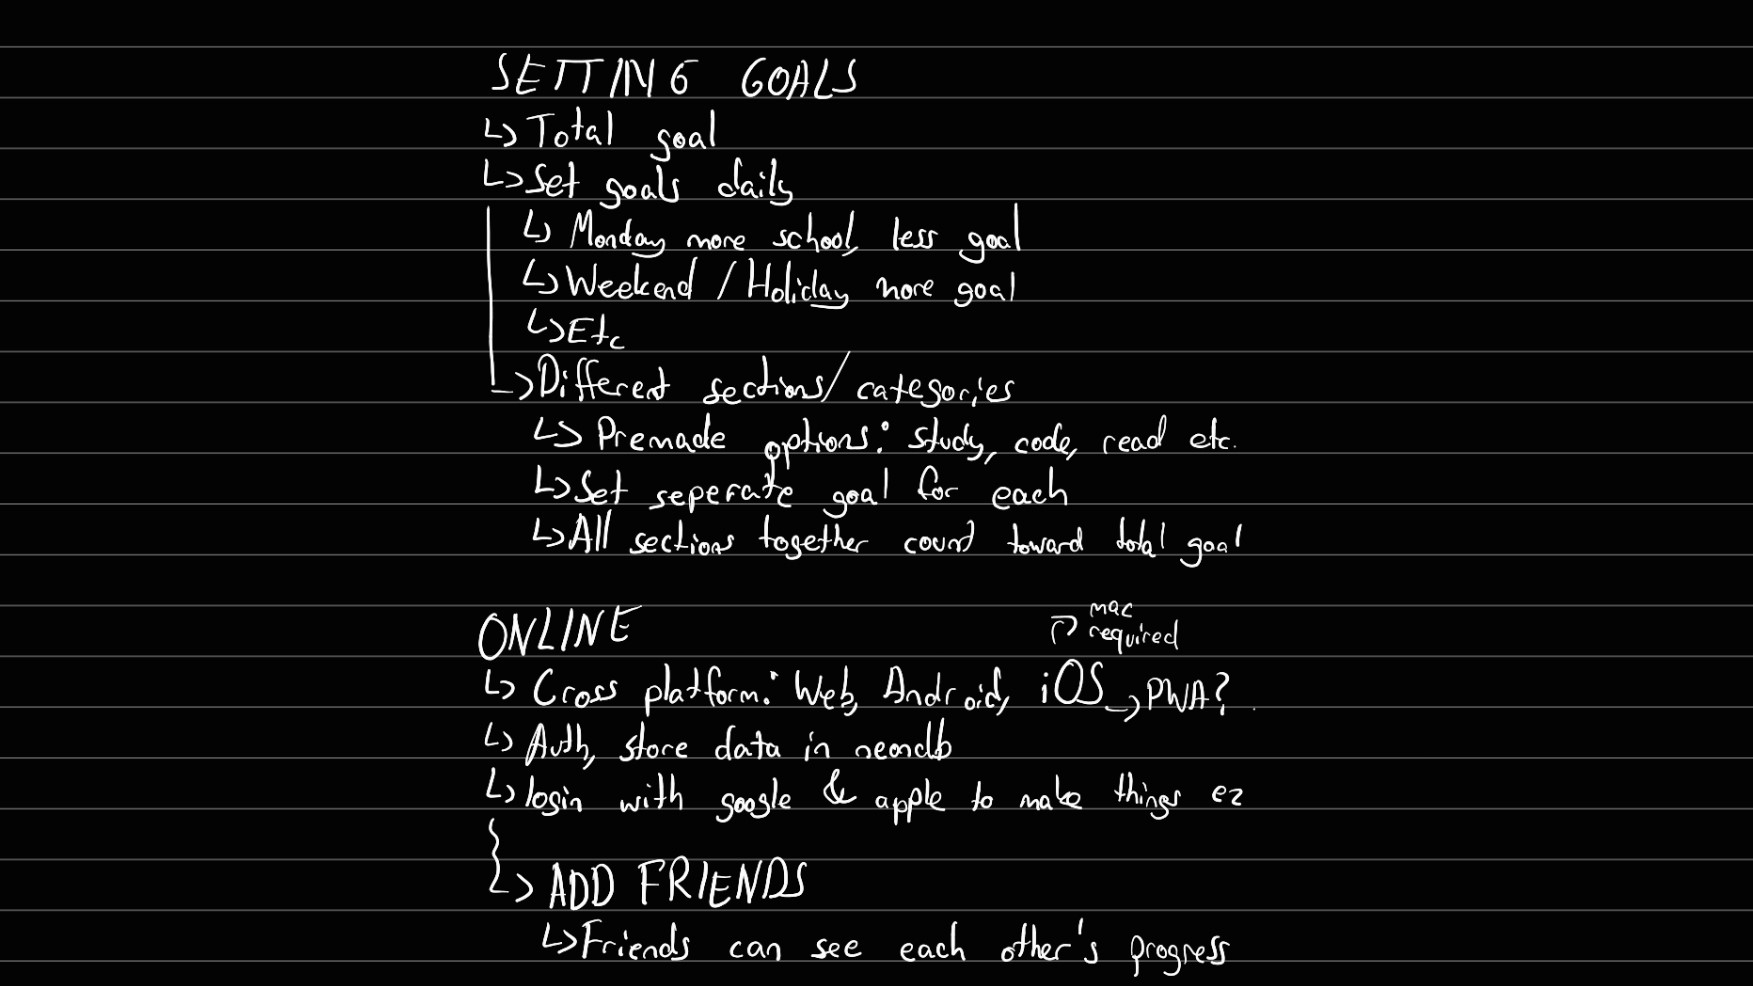 SETTING GOALS
↳ Total goal
↳ Set goals daily
↳ Monday more school, less goal
↳ Weekend / Holiday more goal
↳ Etc
↳ Different sections/categories
↳ Premade options: study, code, read etc.
↳ Set seperate goal for each
↳ All sections together count toward total goal
ONLINE
mac
required
↳ Cross platform: Web, Android, iOS → PWA?
↳ Auth, store data in neondb
↳ login with google & apple to make things ez
↳ ADD FRIENDS
↳ Friends can see each other's progress